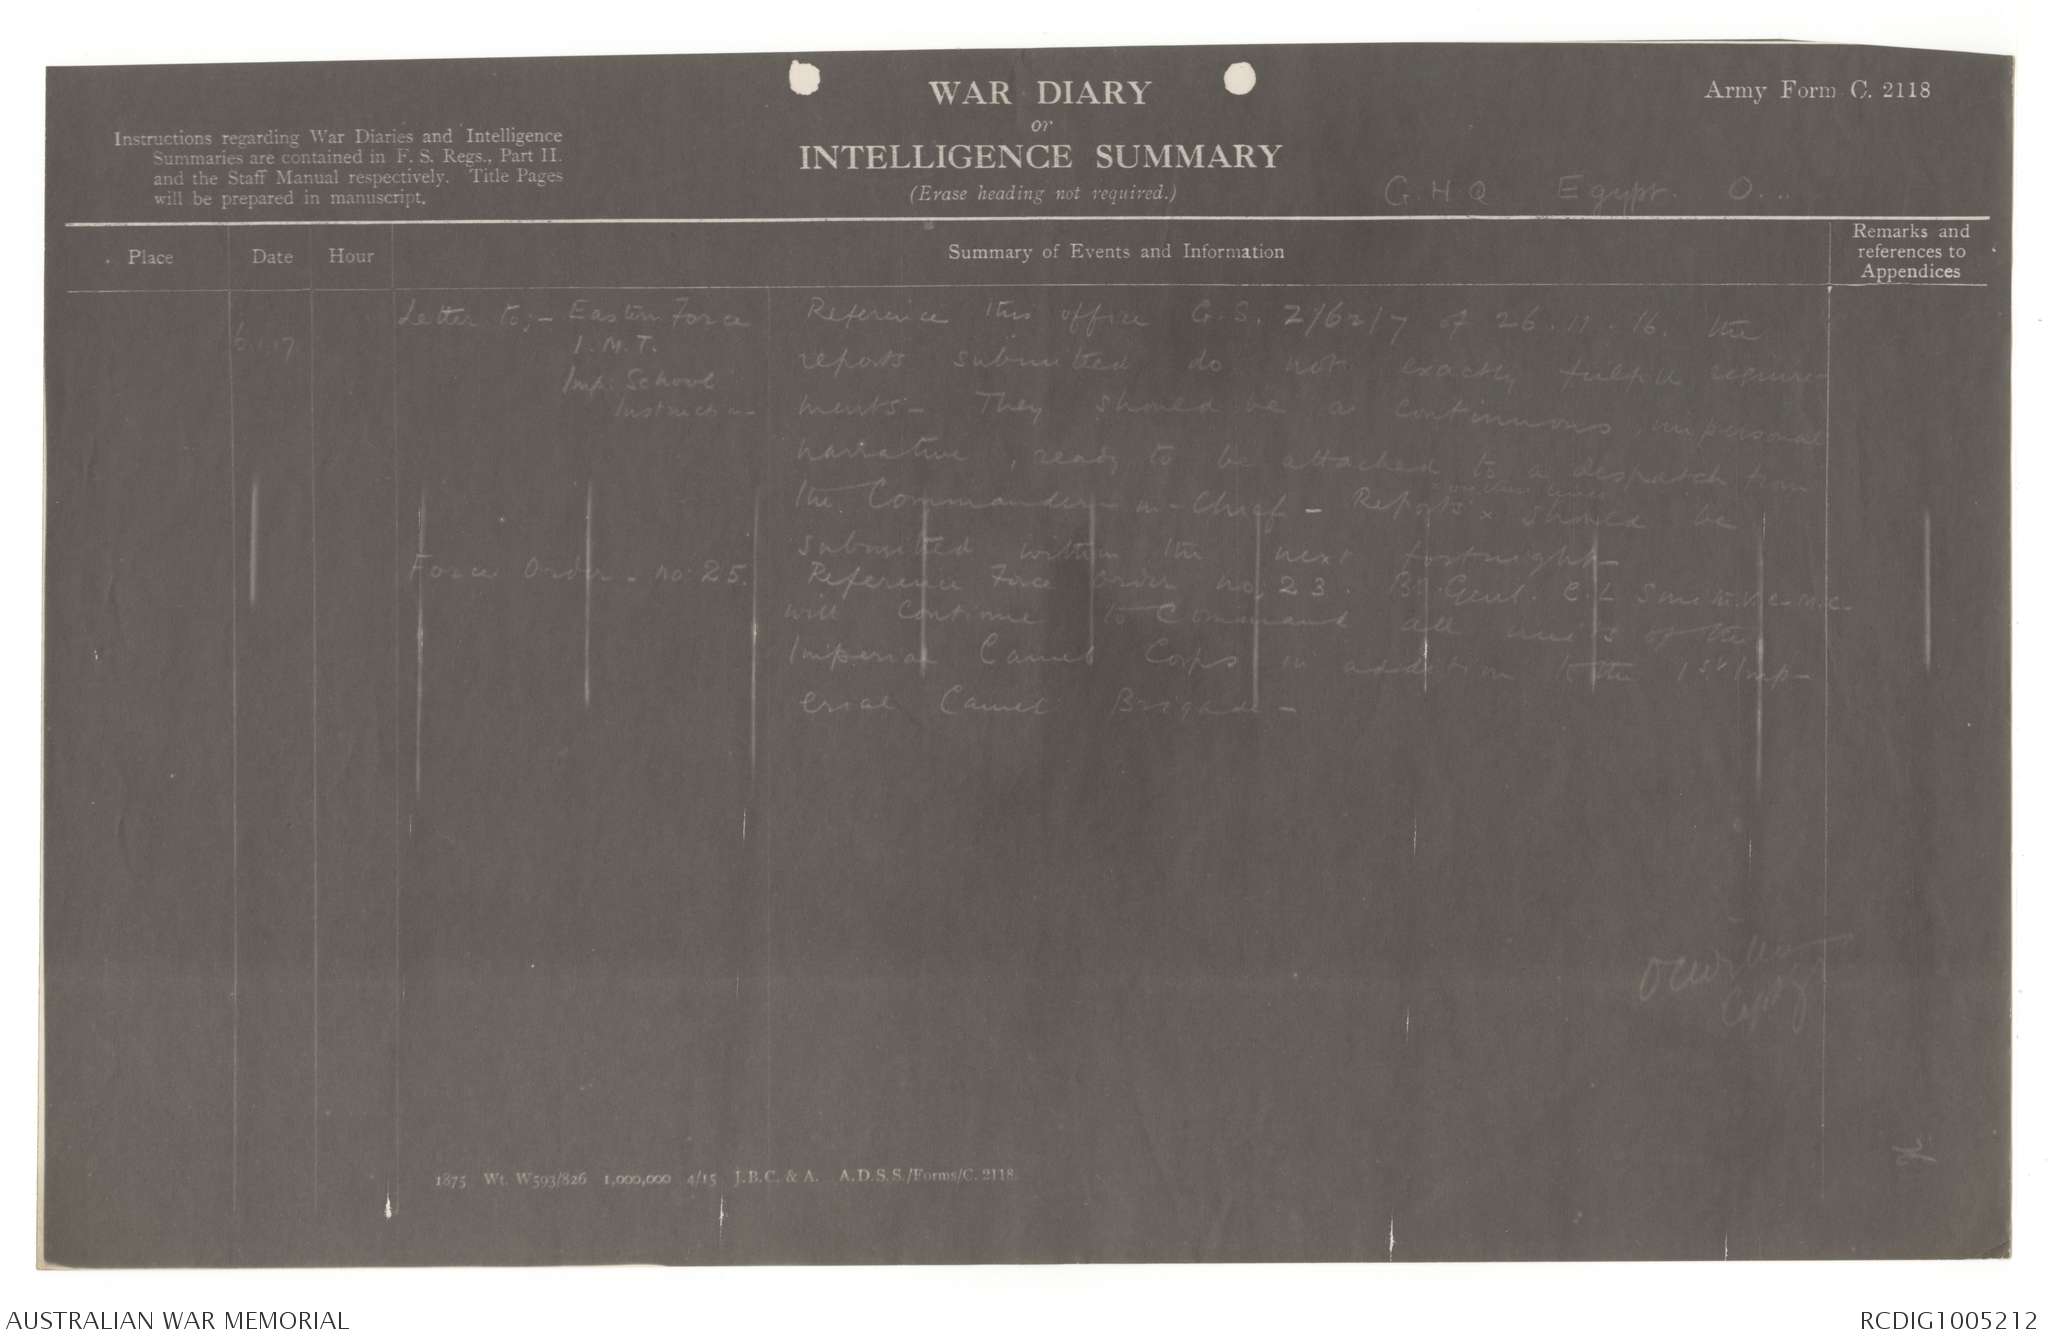 WAR DIARY
or
INTELLIGENCE SUMMARY
(Erase heading not required.)
Army Form C. 2118
Instructions regarding War Diaries and Intelligence
Summaries are contained in F. S. Regs., Part II.
and the Staff Manual respectively. Title Pages
will be prepared in manuscript.
G.H.Q Egypt. O...
Place
Date
Hour
Summary of Events and Information
Remarks and
references to
Appendices
6.1.17
Letter to;- Eastern Force
I.M.T.
Imp: School
Instruction
Reference this office G.S. Z/62/7 of 26.11.16. the
reports submitted do not exactly fulfil require-
ments - They should be a continuous, impersonal
narrative, ready to be attached to a despatch from
the Commander-in-Chief - Reports x should be
on these lines
submitted within the next fortnight -
Force Order - no: 25.
Reference Force Order no. 23. Br. Genl. C.L Smith. V.C. M.C.
will continue to Command all units of the
Imperial Camel Corps in addition to the 1st Imp-
erial Camel Brigade -
Capt
1875 Wt. W593/826 1,000,000 4/15 J.B.C. & A. A.D.S.S./Forms/C. 2118.
AUSTRALIAN WAR MEMORIAL
RCDIG1005212